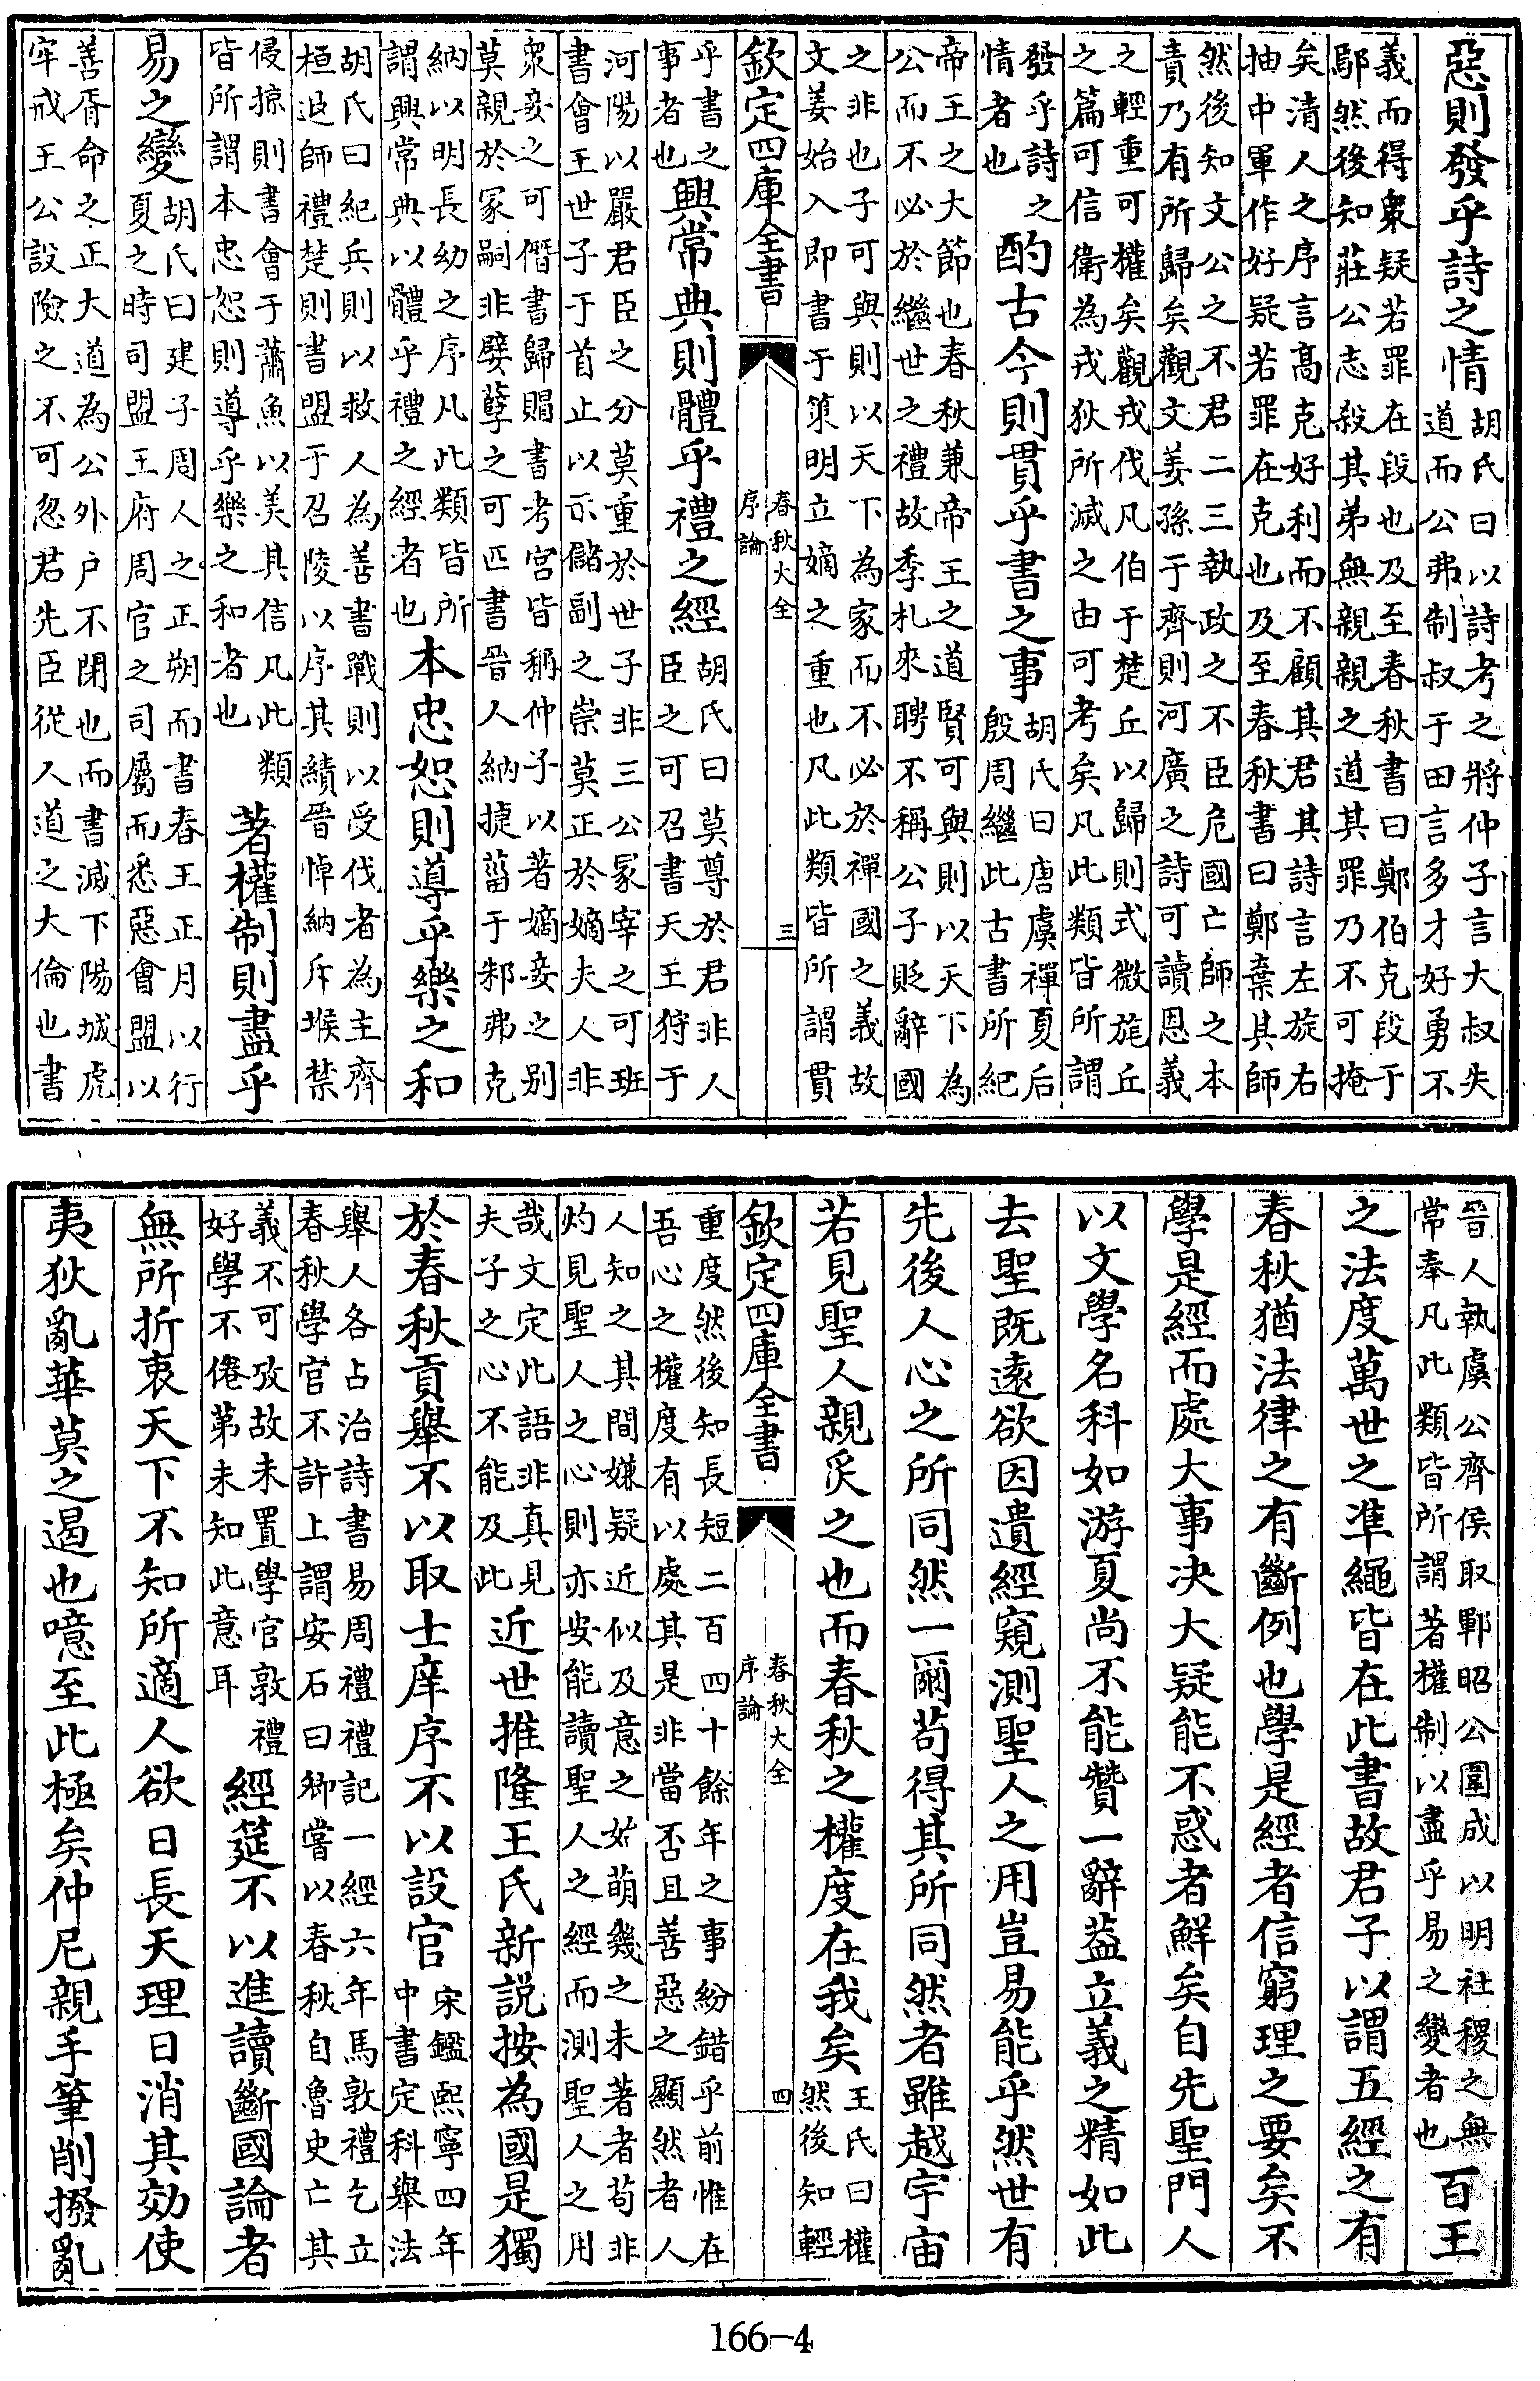 惡則發乎詩之情
胡氏曰以詩考之將仲子言大叔失
道而公弗制叔于田言多才好勇不
義而得衆疑若罪在段也及至春秋書曰鄭伯克段于
鄢然後知莊公志殺其弟無親親之道其罪乃不可掩
矣清人之序言高克好利而不顧其君其詩言左旋右
抽中軍作好疑若罪在克也及至春秋書曰鄭棄其師
然後知文公之不君二三執政之不臣危國亡師之本
責乃有所歸矣觀文姜孫于齊則河廣之詩可讀恩義
之輕重可權矣觀戎伐凡伯于楚丘以歸則式微旄丘
之篇可信衛為戎狄所滅之由可考矣凡此類皆所謂
發乎詩之
情者也
酌古今則貫乎書之事
胡氏曰唐虞禪夏后
殷周繼此古書所紀
帝王之大節也春秋兼帝王之道賢可與則以天下為
公而不必於繼世之禮故季札來聘不稱公子貶辭國
之非也子可與則以天下為家而不必於禪國之義故
文姜始入即書于策明立嫡之重也凡此類皆所謂貫
欽定四庫全書
春秋大全
序論
三
乎書之
事者也
興常典則體乎禮之經
胡氏曰莫尊於君非人
臣之可召書天王狩于
河陽以嚴君臣之分莫重於世子非三公冢宰之可班
書會王世子于首止以示儲副之崇莫正於嫡夫人非
衆妾之可僭書歸賵書考宫皆稱仲子以著嫡妾之别
莫親於冢嗣非嬖孽之可匹書晉人納捷菑于邾弗克
納以明長幼之序凡此類皆所
謂興常典以體乎禮之經者也
本忠恕則導乎樂之和
胡氏曰紀兵則以救人為善書戰則以受伐者為主齊
桓退師禮楚則書盟于召陵以序其績晉悼納斥堠禁
侵掠則書會于蕭魚以美其信凡此類
皆所謂本忠恕則導乎樂之和者也
著權制則盡乎
易之變
胡氏曰建子周人之正朔而書春王正月以行
夏之時司盟王府周官之司屬而悉惡會盟以
善胥命之正大道為公外户不閉也而書滅下陽城虎
牢戒王公設險之不可忽君先臣從人道之大倫也書
晉人執虞公齊侯取鄆昭公圍成以明社稷之無
常奉凡此類皆所謂著權制以盡乎易之變者也
百王
之法度萬世之凖繩皆在此書故君子以謂五經之有
春秋猶法律之有斷例也學是經者信窮理之要矣不
學是經而處大事决大疑能不惑者鮮矣自先聖門人
以文學名科如游夏尚不能贊一辭蓋立義之精如此
去聖既遠欲因遺經窺測聖人之用豈易能乎然世有
先後人心之所同然一爾苟得其所同然者雖越宇宙
若見聖人親炙之也而春秋之權度在我矣
王氏曰權
然後知輕
欽定四庫全書
春秋大全
序論
四
重度然後知長短二百四十餘年之事紛錯乎前惟在
吾心之權度有以處其是非當否且善惡之顯然者人
人知之其間嫌疑近似及意之如萌幾之未著者苟非
灼見聖人之心則亦安能讀聖人之經而測聖人之用
哉文定此語非真見
夫子之心不能及此
近世推隆王氏新説按為國是獨
於春秋貢舉不以取士庠序不以設官
宋鑑熙寧四年
中書定科舉法
舉人各占治詩書易周禮禮記一經六年馬敦禮乞立
春秋學官不許上謂安石曰卿嘗以春秋自魯史亡其
義不可攷故未置學官敦禮
好學不倦第未知此意耳
經筵不以進讀斷國論者
無所折衷天下不知所適人欲日長天理日消其効使
夷狄亂華莫之遏也噫至此極矣仲尼親手筆削撥亂
166-4